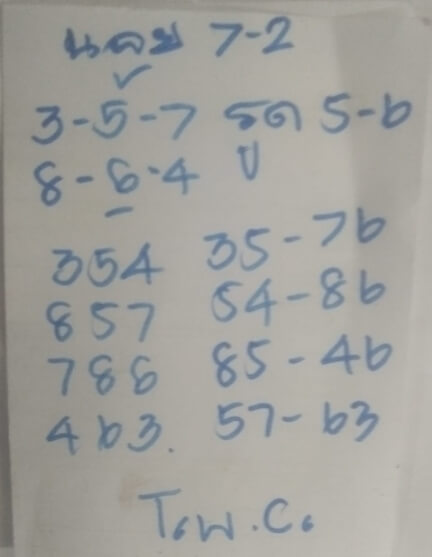 นคย 7-2
3-5-7 รูด 5-6
8-6-4
354 35-76
857 54-86
786 85-46
463. 57-63
T.W.C.